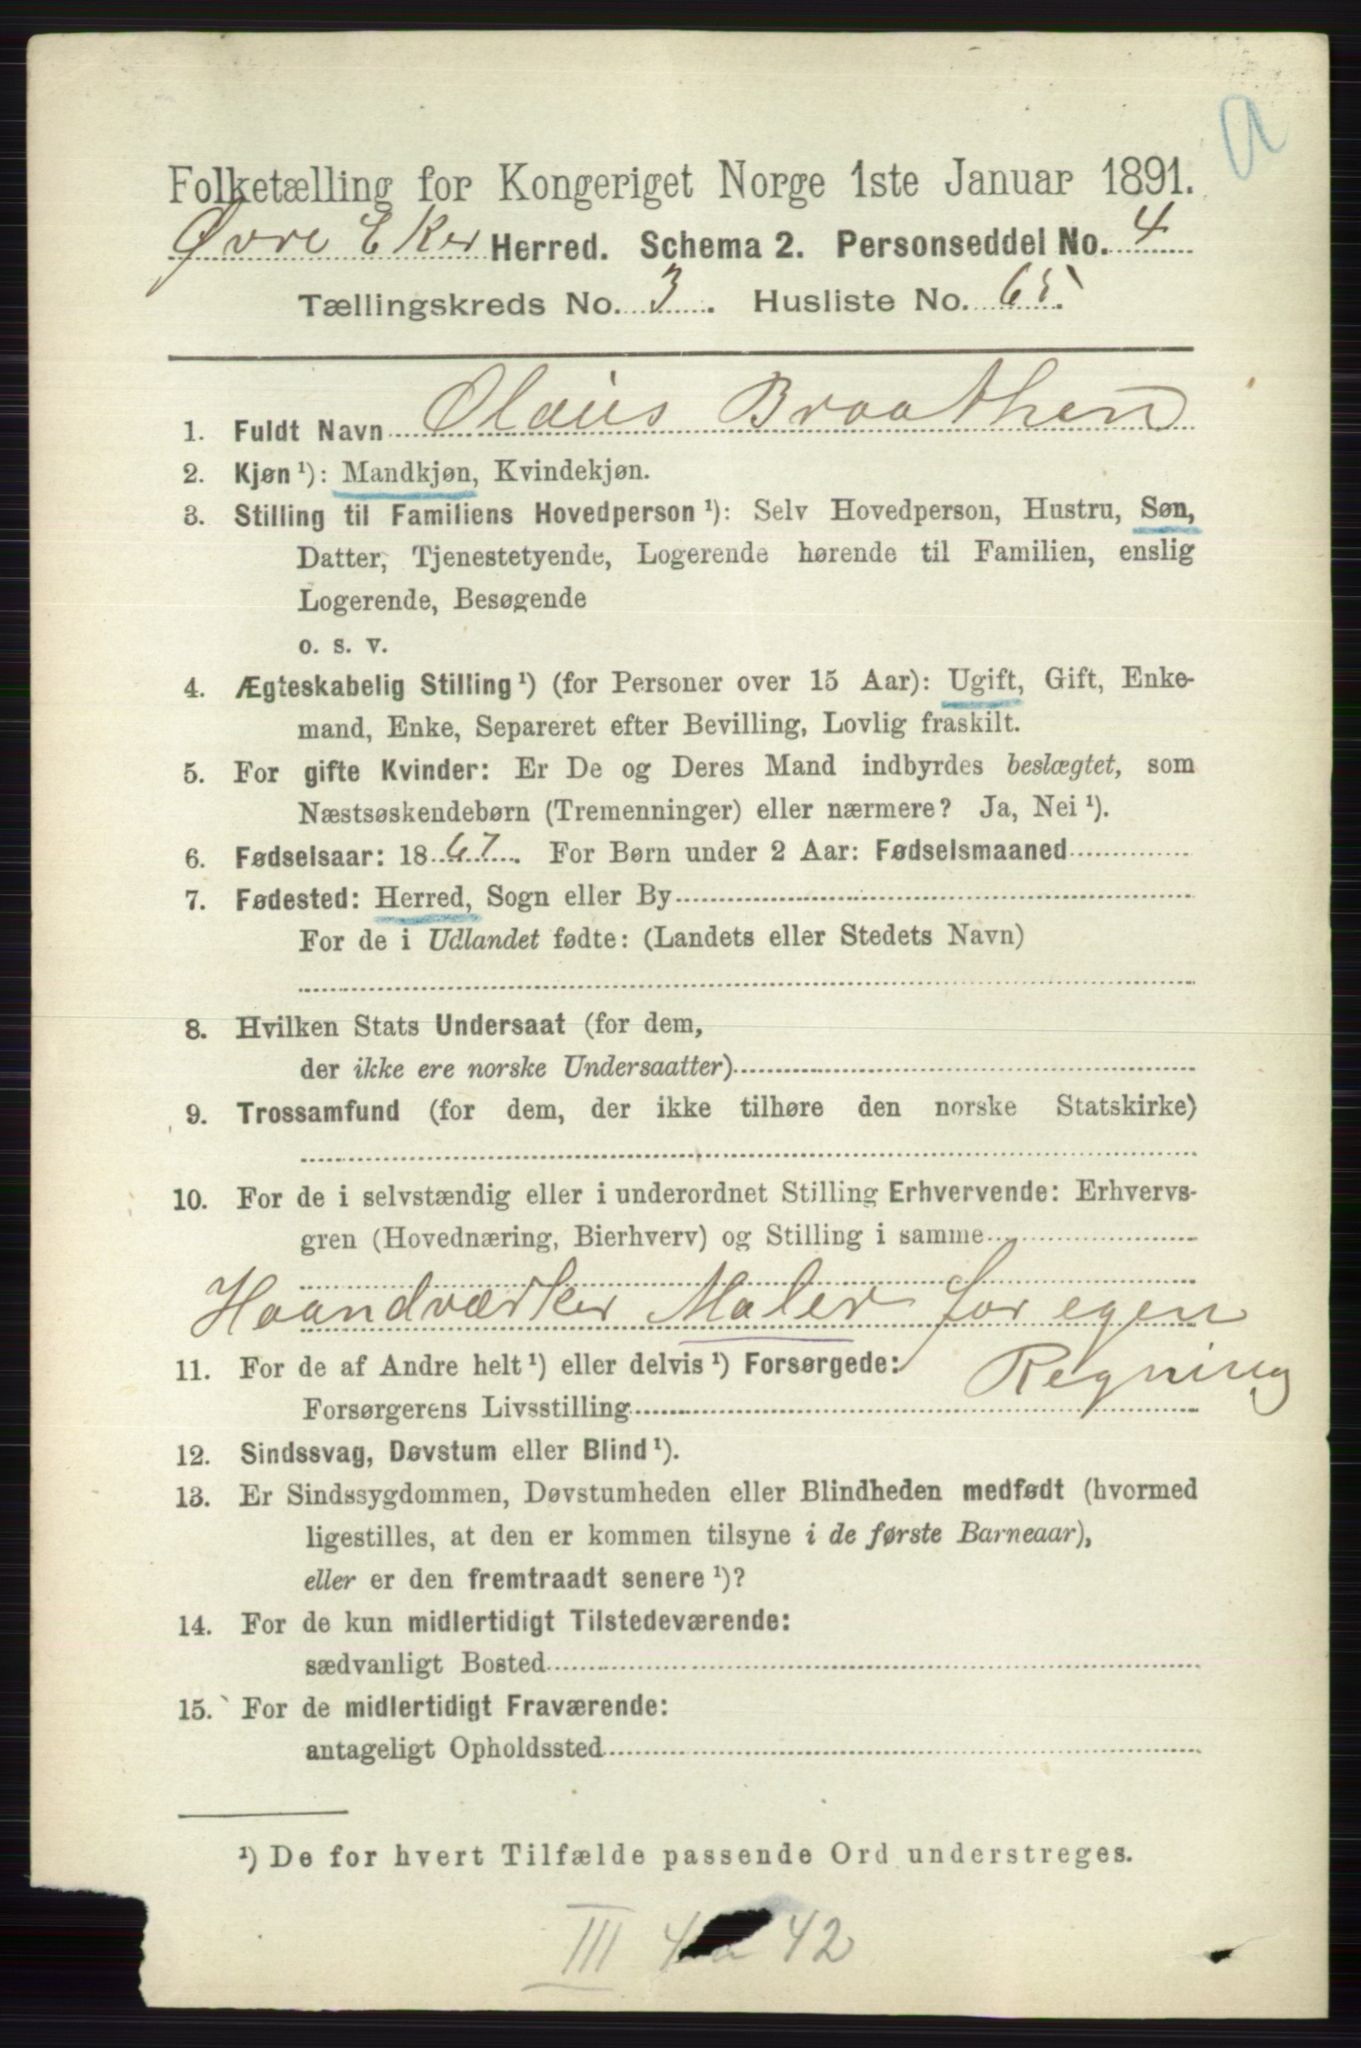 a
Folketælling for Kongeriget Norge 1ste Januar 1891.
Øvre Eker Herred. Schema 2. Personseddel No. 4
Tællingskreds No. 3. Husliste No. 65.
1. Fuldt Navn Olaus Braathen
2. Kjøn ¹): Mandkjøn, Kvindekjøn.
3. Stilling til Familiens Hovedperson ¹): Selv Hovedperson, Hustru, Søn,
Datter, Tjenestetyende, Logerende hørende til Familien, enslig
Logerende, Besøgende
o. s. v.
4. Ægteskabelig Stilling ¹) (for Personer over 15 Aar): Ugift, Gift, Enke-
mand, Enke, Separeret efter Bevilling, Lovlig fraskilt.
5. For gifte Kvinder: Er De og Deres Mand indbyrdes beslægtet, som
Næstsøskendebørn (Tremenninger) eller nærmere? Ja, Nei ¹).
6. Fødselsaar: 1867. For Børn under 2 Aar: Fødselsmaaned
7. Fødested: Herred, Sogn eller By
For de i Udlandet fødte: (Landets eller Stedets Navn)
8. Hvilken Stats Undersaat (for dem,
der ikke ere norske Undersaatter)
9. Trossamfund (for dem, der ikke tilhøre den norske Statskirke)
10. For de i selvstændig eller i underordnet Stilling Erhvervende: Erhvervs-
gren (Hovednæring, Bierhverv) og Stilling i samme
Haandværker Maler for egen
Regning
11. For de af Andre helt ¹) eller delvis ¹) Forsørgede:
Forsørgerens Livsstilling
12. Sindssvag, Døvstum eller Blind ¹).
13. Er Sindssygdommen, Døvstumheden eller Blindheden medfødt (hvormed
ligestilles, at den er kommen tilsyne i de første Barneaar),
eller er den fremtraadt senere ¹)?
14. For de kun midlertidigt Tilstedeværende:
sædvanligt Bosted
15. For de midlertidigt Fraværende:
antageligt Opholdssted
¹) De for hvert Tilfælde passende Ord understreges.
III 4 42